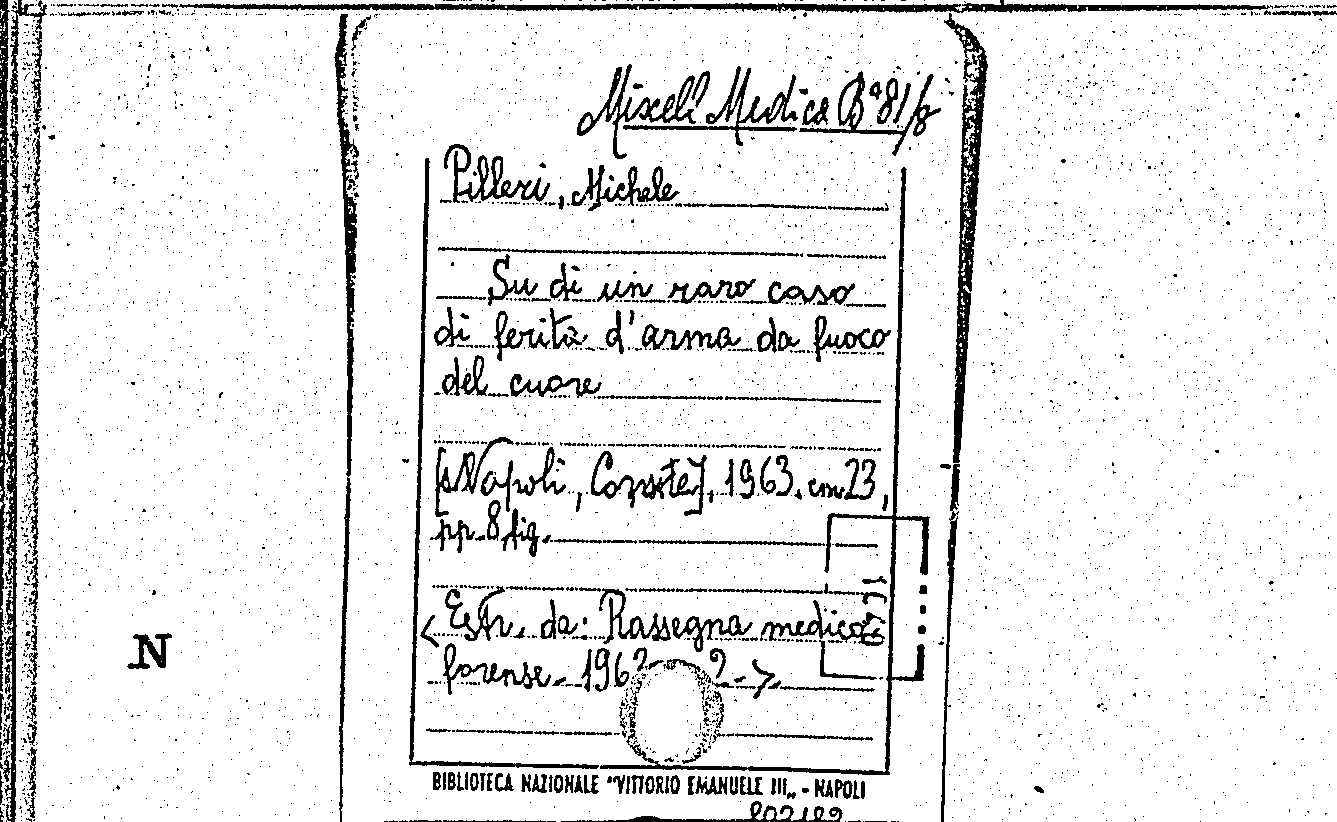 Miscell. Medica Bª 81/8
Pilleri, Michele
Su di un raro caso
di ferita d'arma da fuoco
del cuore
[Napoli, 1963. cm 23,
pp. 8, fig.
< Estr. da: Rassegna medico
forense - 196 2 - >
N
BIBLIOTECA NAZIONALE "VITTORIO EMANUELE III„ - NAPOLI